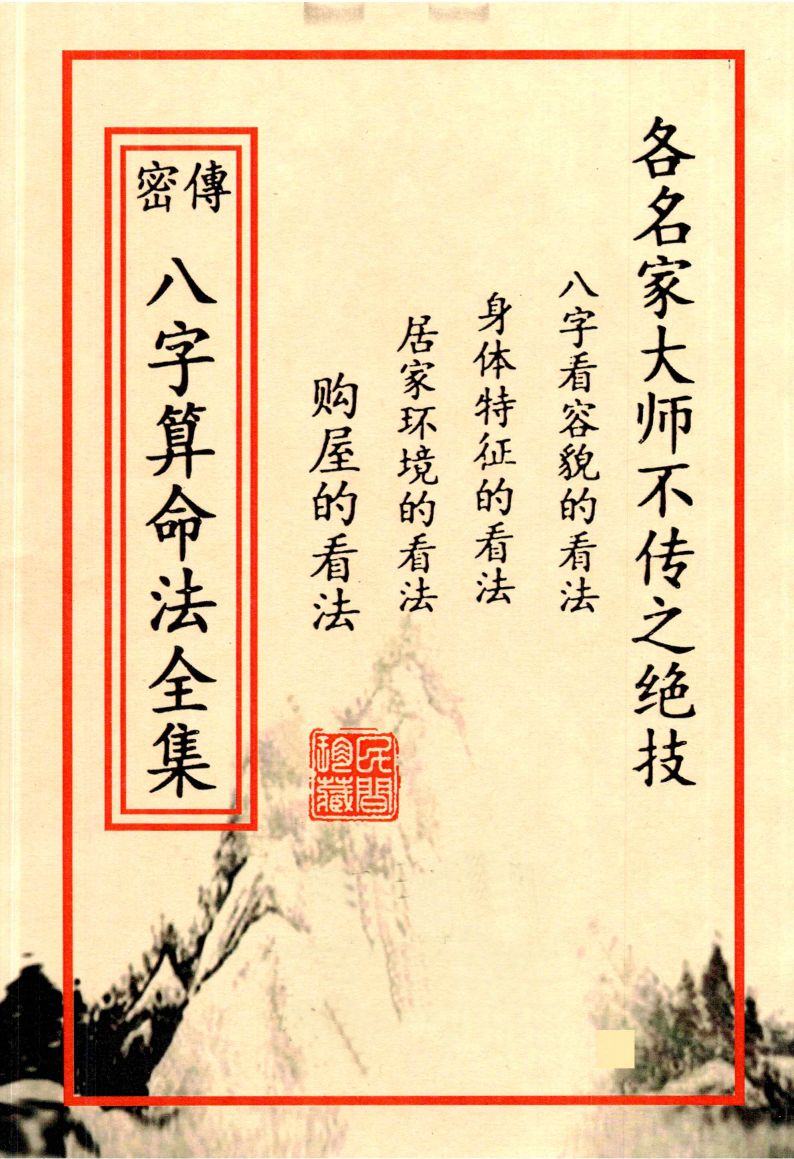 各名家大师不传之绝技
八字看容貌的看法
身体特征的看法
居家环境的看法
购屋的看法
民間珍藏
傳密
八字算命法全集